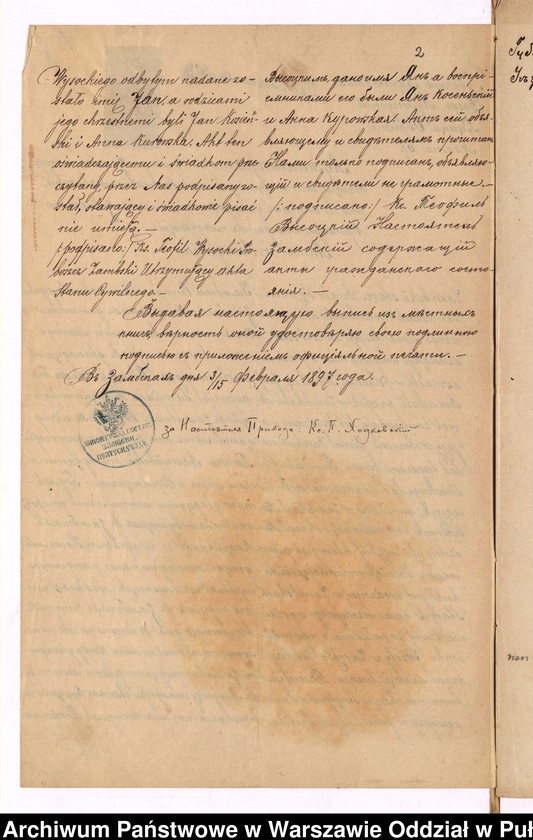 2
Wysockiego odbytym nadane zo-
stało imię Jan, a rodzicami
jego chrzestnemi byli Jan Kosiń-
ski i Anna Kurowska. Akt ten
oświadczającemu i świadkom prze-
czytany, przez Nas podpisany zo-
stał, stawający i świadkowie pisać
nie umieją. —
podpisano: Ks. Teofil Wysocki Pro-
boszcz Zambski Utrzymujący akta
Stanu Cywilnego. —
Высоцкимъ, дано имя Янъ а воспрі-
емниками его были Янъ Косеньскій
и Анна Куровская. Актъ сей объя-
вляющему и свидѣтелямъ прочитанъ
Нами только подписанъ, объявляю-
щій и свидѣтели не грамотные. —
/: подписано :/ Кс. Теофиль
Высоцкій Настоятель
Замбскій содержащій
акты гражданскаго состо-
янія. —
Выдавая настоящую выпись изъ мѣстныхъ
книгъ, вѣрность оной удостовѣряю своею подлинною
подписью съ приложеніемъ офиціяльной печати. —
Въ Замбскахъ дня 3/15 Февраля 1897 года.
за Настоятеля Прихода: Кс. П. Ходковскій
Archiwum Państwowe w Warszawie Oddział w Puł